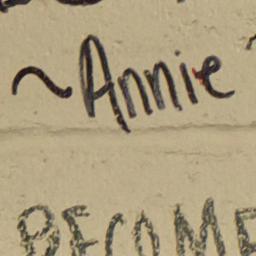 ~Annie
BECOME